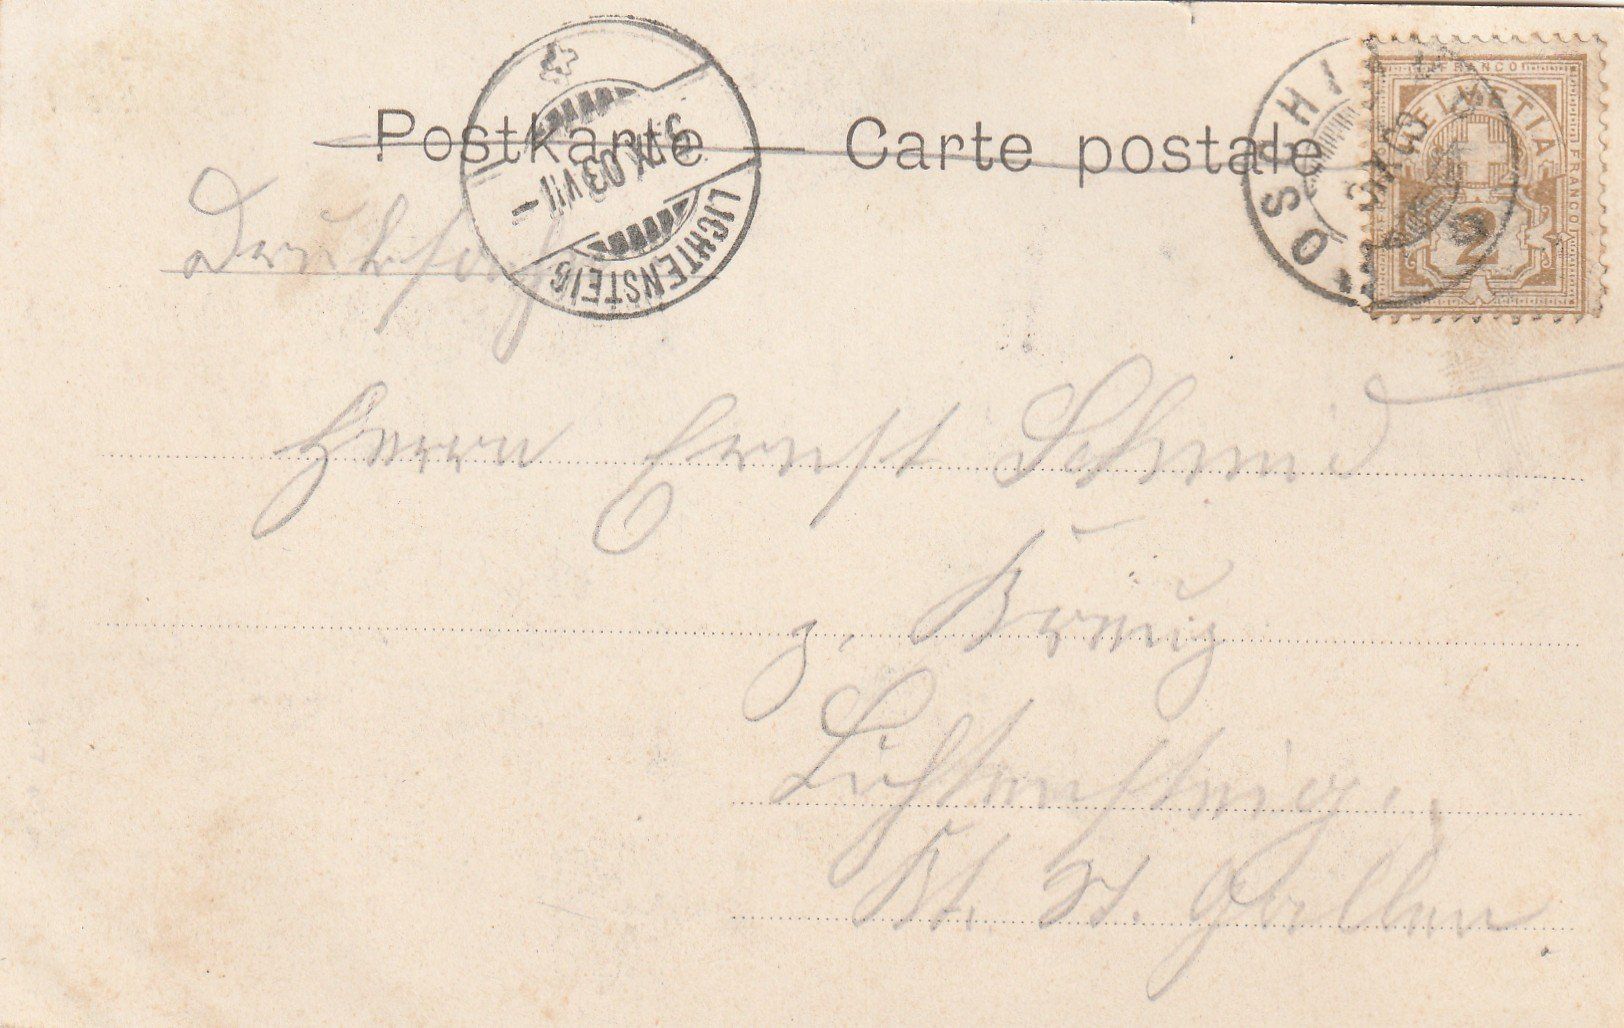 Postkarte — Carte postale
Drucksache
Herrn Ernst Schmid
z. Kreuz
Lichtensteig.
Kt. St. Gallen.
LICHTENSTEIG
9.IX.03.VII-
FRANCO
HELVETIA
FRANCO
2